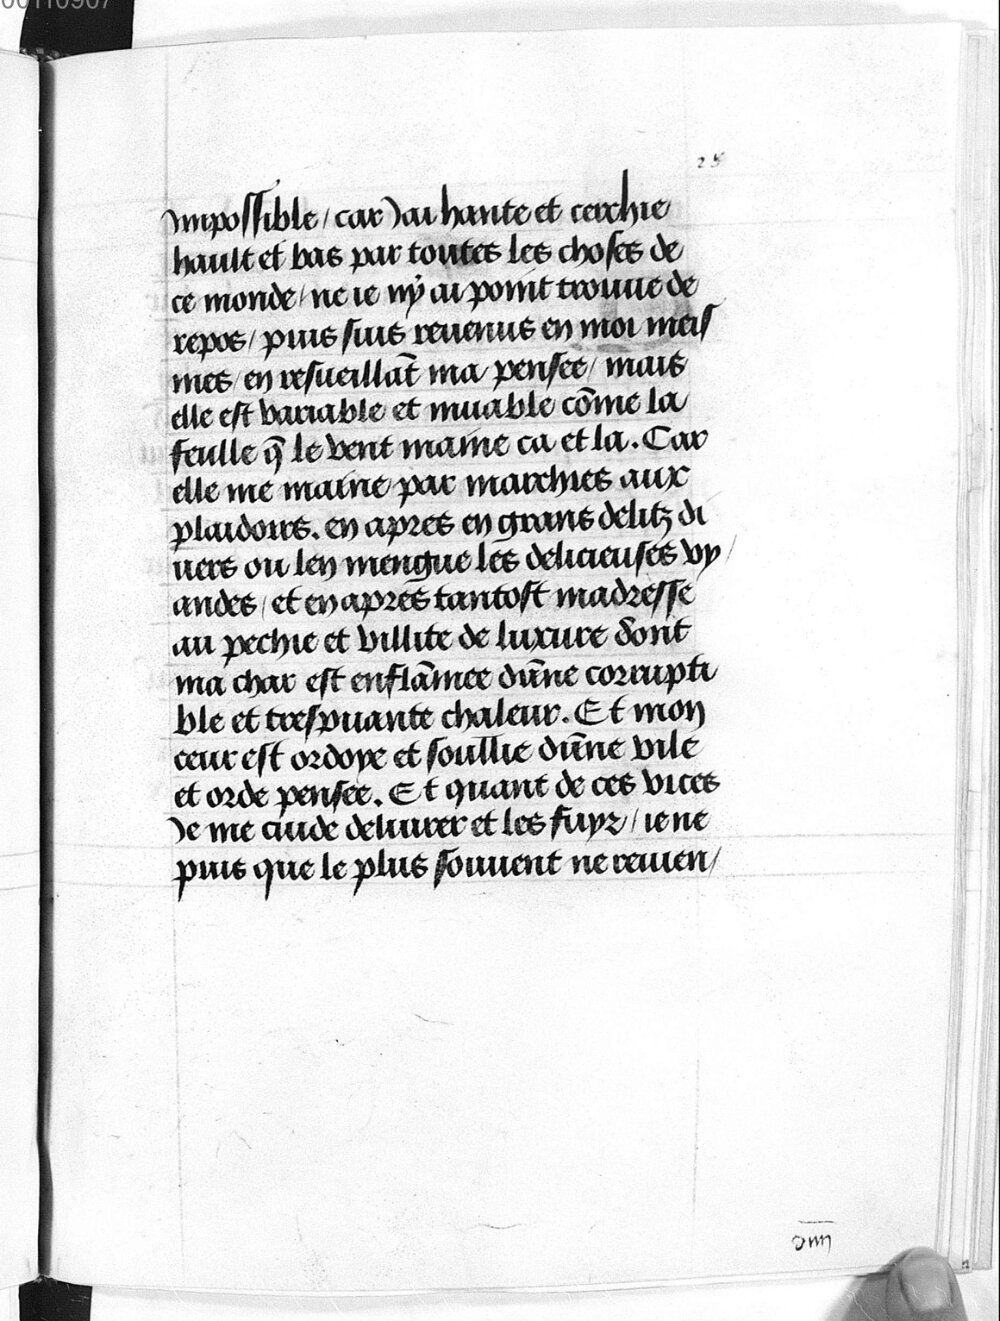 00110907
25
Impossible / car Jai hante et cerchie
hault et bas par toutes les choses de
ce monde / ne ie ny ai point trouue de
repos / puis suis reuenus en moi meis
mes / en resueillat̄ ma pensee / mais
elle est variable et muable com̄e la
feulle q̄ le vent maine ca et la. Car
elle me maine par marchies aux
plaidoirs. en apres en grans delitz di
uers ou len mengue les delicieuses vy /
andes / et en apres tantost madresse
au pechie et villite de luxure dont
ma char est enflam̄ee dun̄e corrupti
ble et trespuante chaleur. Et mon
ceur est ordoye et soullie dun̄e vile
et orde pensee. Et quant de ces vices
Je me cuide deliurer et les fuyr / ie ne
puis que le plus souuent ne reuien /